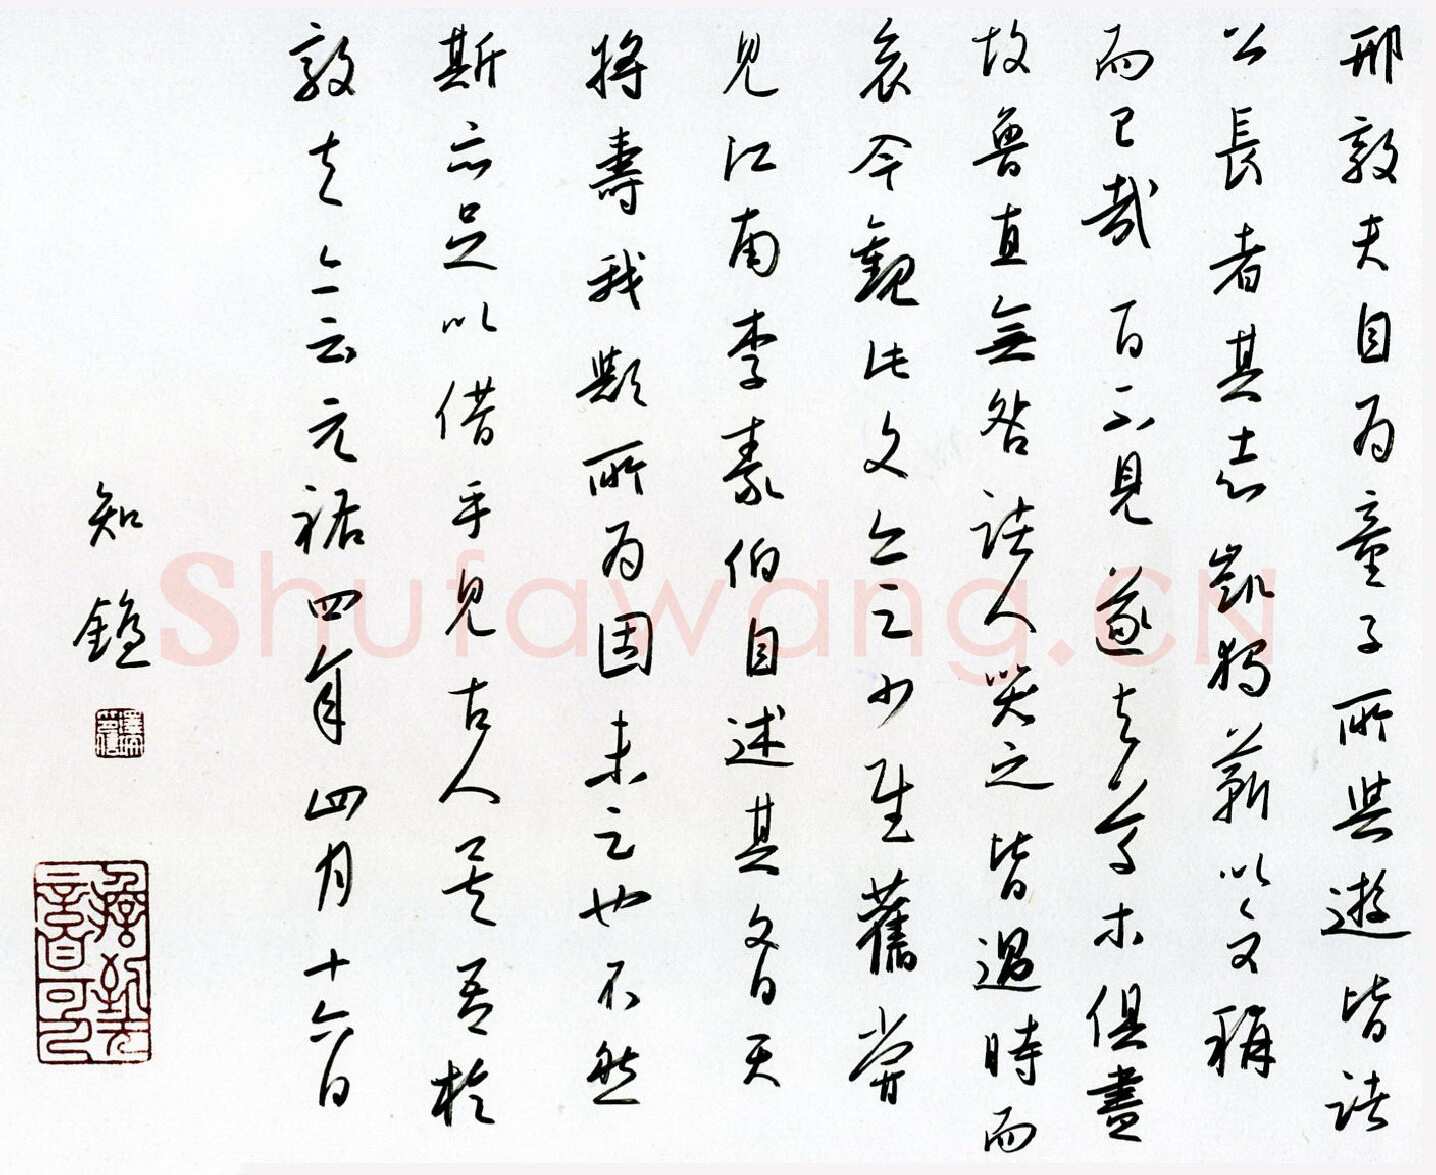 邢敦夫自為童子所與遊皆諸
公長者其志凱獨蘄以文稱
而已哉百不見遂與草木俱盡
故魯直無咎諸人哭之皆過時而
哀今觀此文舊嘗
見江南李泰伯自述其文曰天
將壽我歟所為固未也不然
斯亦足以借手見古人矣吾於
敦夫亦云元祐四年四月十六日
知
Shufawang.CN